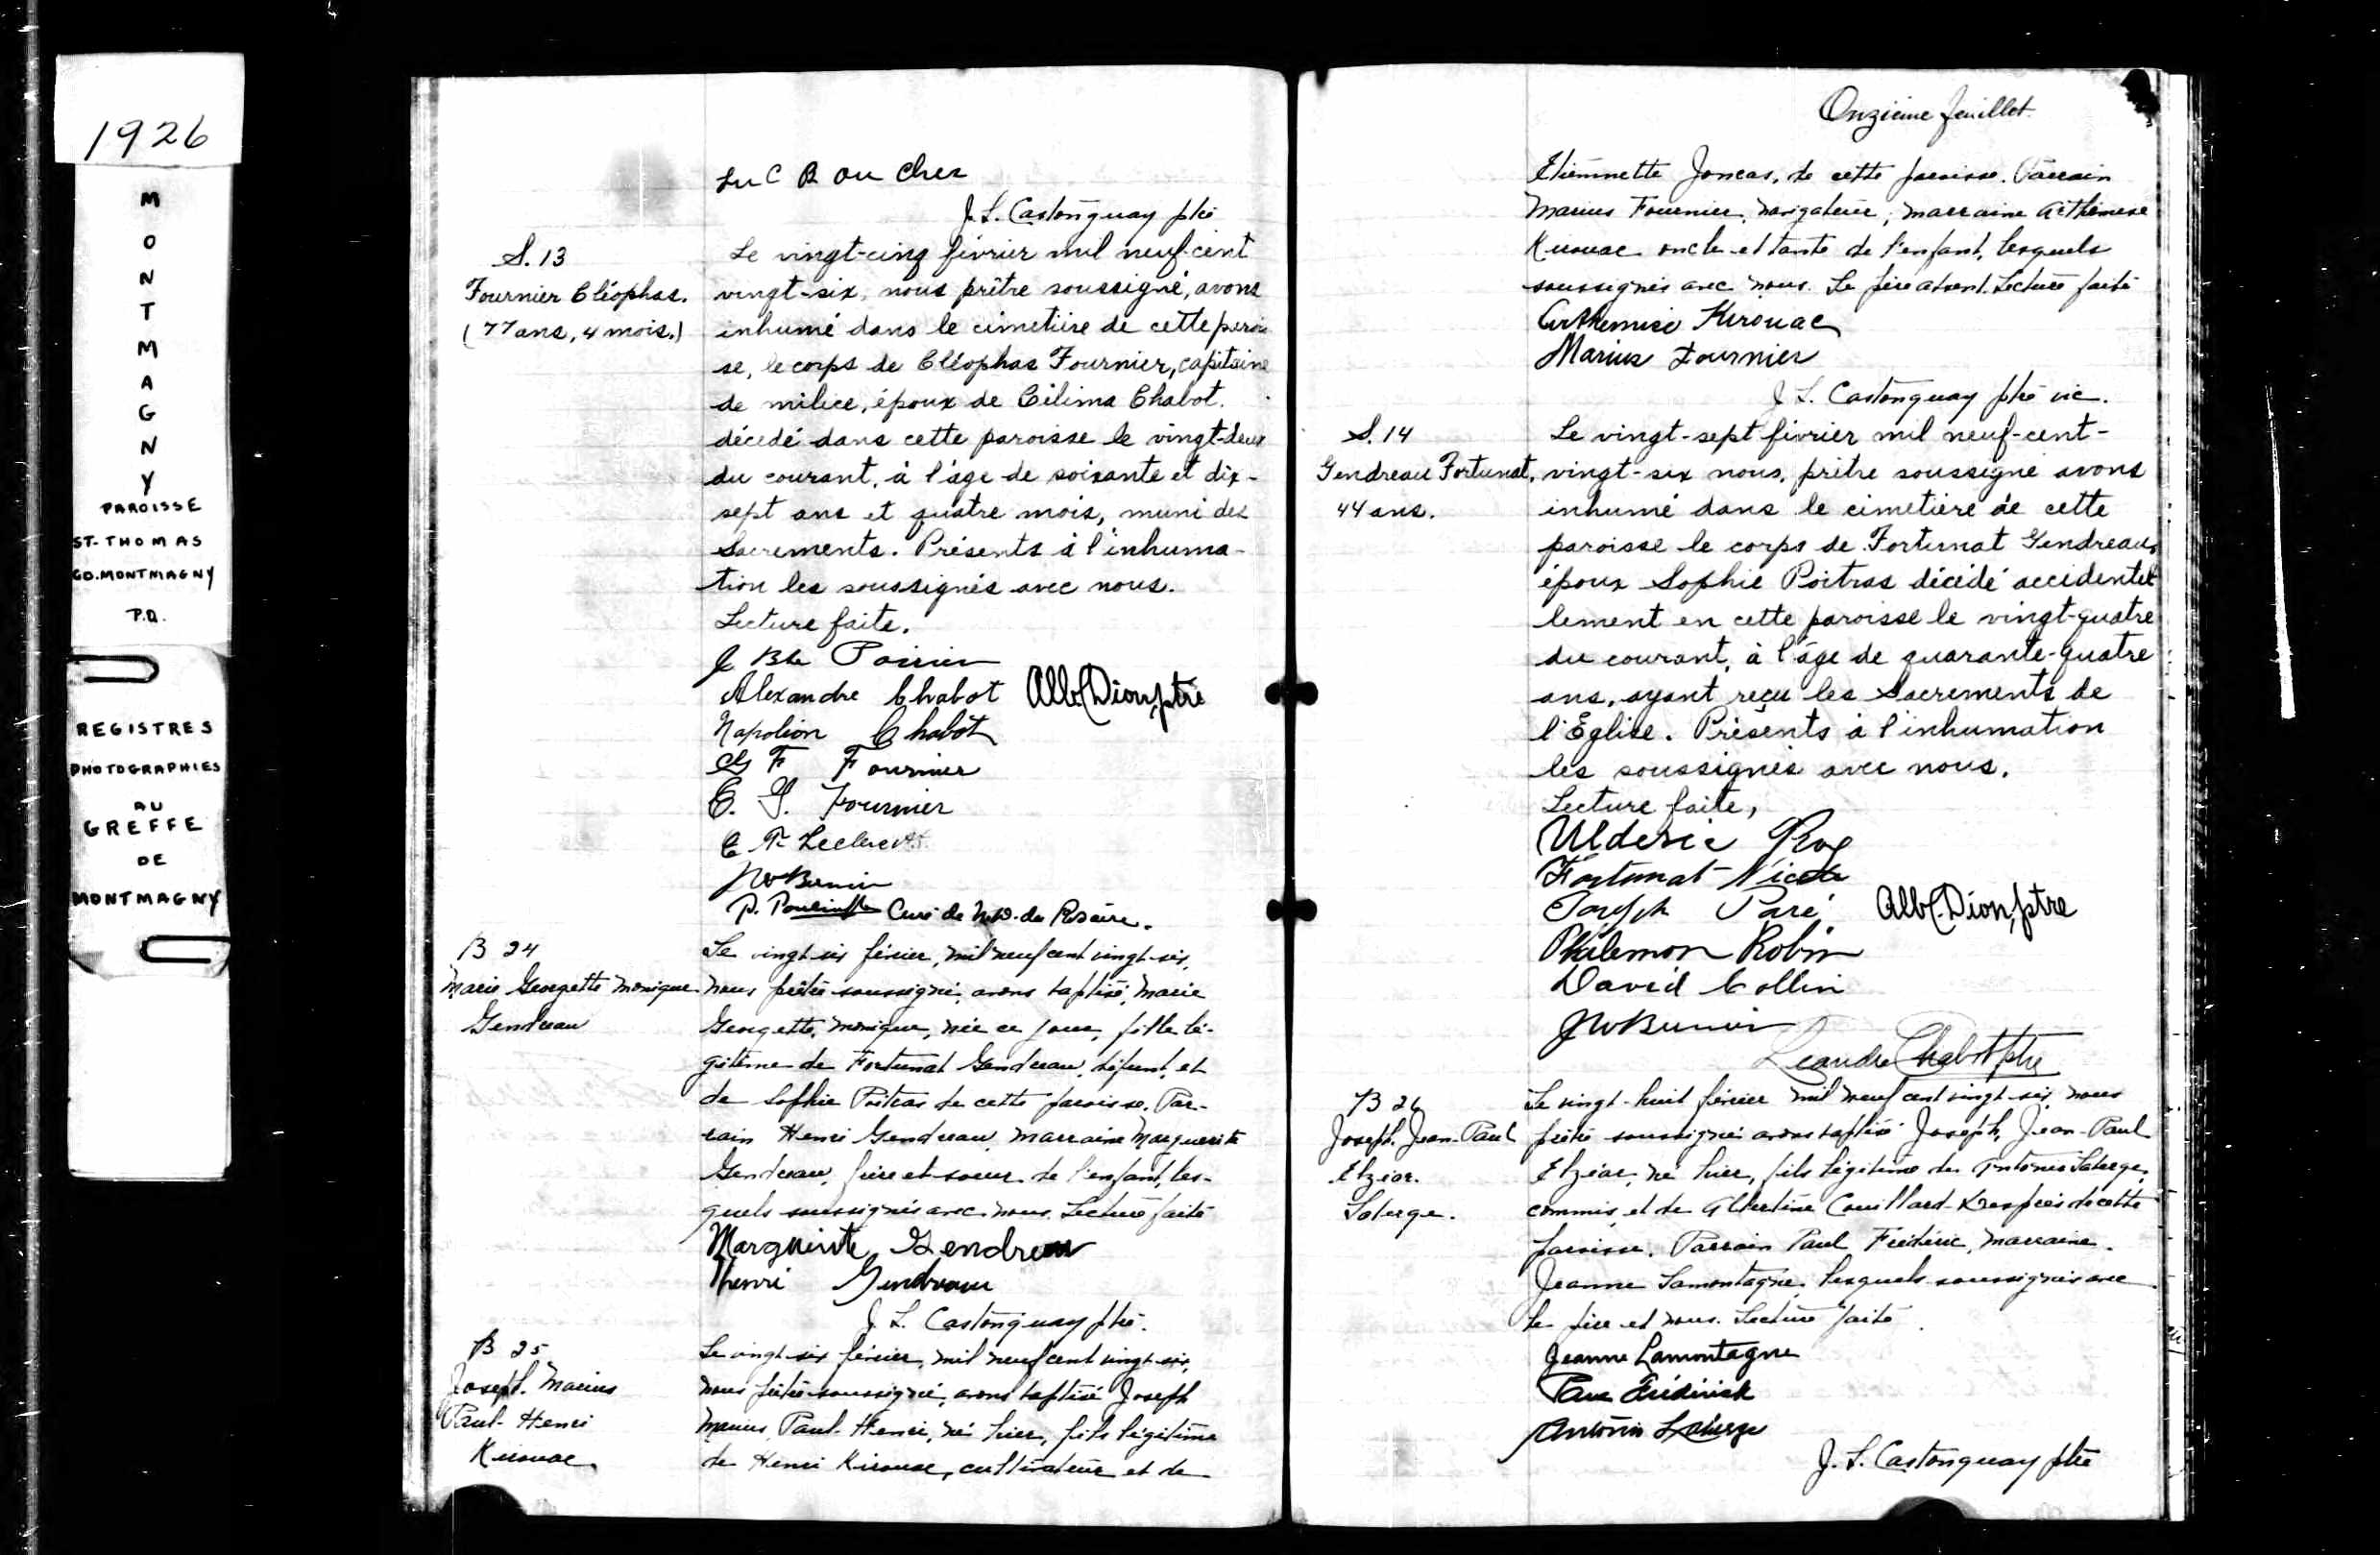 1926
MONTMAGNY
PAROISSE
ST-THOMAS
CO. MONTMAGNY
P.Q.
REGISTRES
PHOTOGRAPHIES
AU
GREFFE
DE
MONTMAGNY
Luc Boucher
J. L. Castonguay ptre
S. 13
Fournier Cléophas.
(77 ans, 4 mois.)
Le vingt-cinq février mil neuf-cent
vingt-six, nous prêtre soussigné, avons
inhumé dans le cimetière de cette parois
se, le corps de Cléophas Fournier, capitaine
de milice, époux de Célima Chabot.
décédé dans cette paroisse le vingt-deux
du courant, à l'âge de soixante et dix-
sept ans et quatre mois, muni des
Sacrements. Présents à l'inhuma-
tion les soussignés avec nous.
Lecture faite.
J Bte Poirier
Alexandre Chabot Alb. Dion, ptre
Napoléon Chabot
F Fournier
Fournier
Leclerc
P. Curé de N.D. du Rosaire.
B 24
Marie Georgette Monique
Gendreau
Le vingt-six février, mil neuf cent vingt-six,
nous prêtre soussigné, avons baptisé, Marie
Georgette, Monique, née ce jour, fille lé-
gitime de Fortunat Gendreau, défunt, et
de Sophie Poitras de cette paroisse. Par-
rain Henri Gendreau, marraine Marguerite
Gendreau, frère et soeur de l'enfant, les-
quels soussignés avec nous. Lecture faite
Marguerite Gendreau
Henri Gendreau
J. L. Castonguay ptre.
B 25
Joseph. Marius
Paul-Henri
Kirouac
Le vingt-six février, mil neuf cent vingt-six,
nous prêtre soussigné, avons baptisé Joseph
Marius, Paul-Henri, né hier, fils légitime
de Henri Kirouac, cultivateur et de
Onzième feuillet.
Etiennette Joncas, de cette paroisse. Parrain
Marius Fournier, navigateur, marraine Arthémise
Kirouac oncle et tante de l'enfant, lesquels
soussignés avec nous. Le père absent. Lecture faite
Arthemise Kirouac
Marius Fournier
J L. Castonguay ptre vic.
S. 14
Gendreau Fortunat,
44 ans.
Le vingt-sept février mil neuf-cent-
vingt-six nous, prêtre soussigné avons
inhumé dans le cimetière de cette
paroisse le corps de Fortunat Gendreau,
époux Sophie Poitras décédé accidentel
lement en cette paroisse le vingt-quatre
du courant, à l'âge de quarante-quatre
ans, ayant reçu les Sacrements de
l'Eglise. Présents à l'inhumation
les soussignés avec nous.
Lecture faite,
Ulderic Roy
Fortunat Nicole
Joseph Paré Alb. Dion, ptre
Philemon Robin
David Collin
Leandre Chabot ptre
B 26
Joseph. Jean-Paul
Elzéar.
Laberge.
Le vingt-huit février mil neuf cent vingt-six, nous
prêtre soussigné avons baptisé Joseph, Jean-Paul
Elzéar, né hier, fils légitime de Antonio Laberge,
commis, et de Albertine Couillard-Després de cette
paroisse. Parrain Paul Frédéric, marraine
Jeanne Lamontagne, lesquels soussignés avec
le père et nous. Lecture faite
Jeanne Lamontagne
Paul Frédérick
Antonio Laberge
J. L. Castonguay ptre